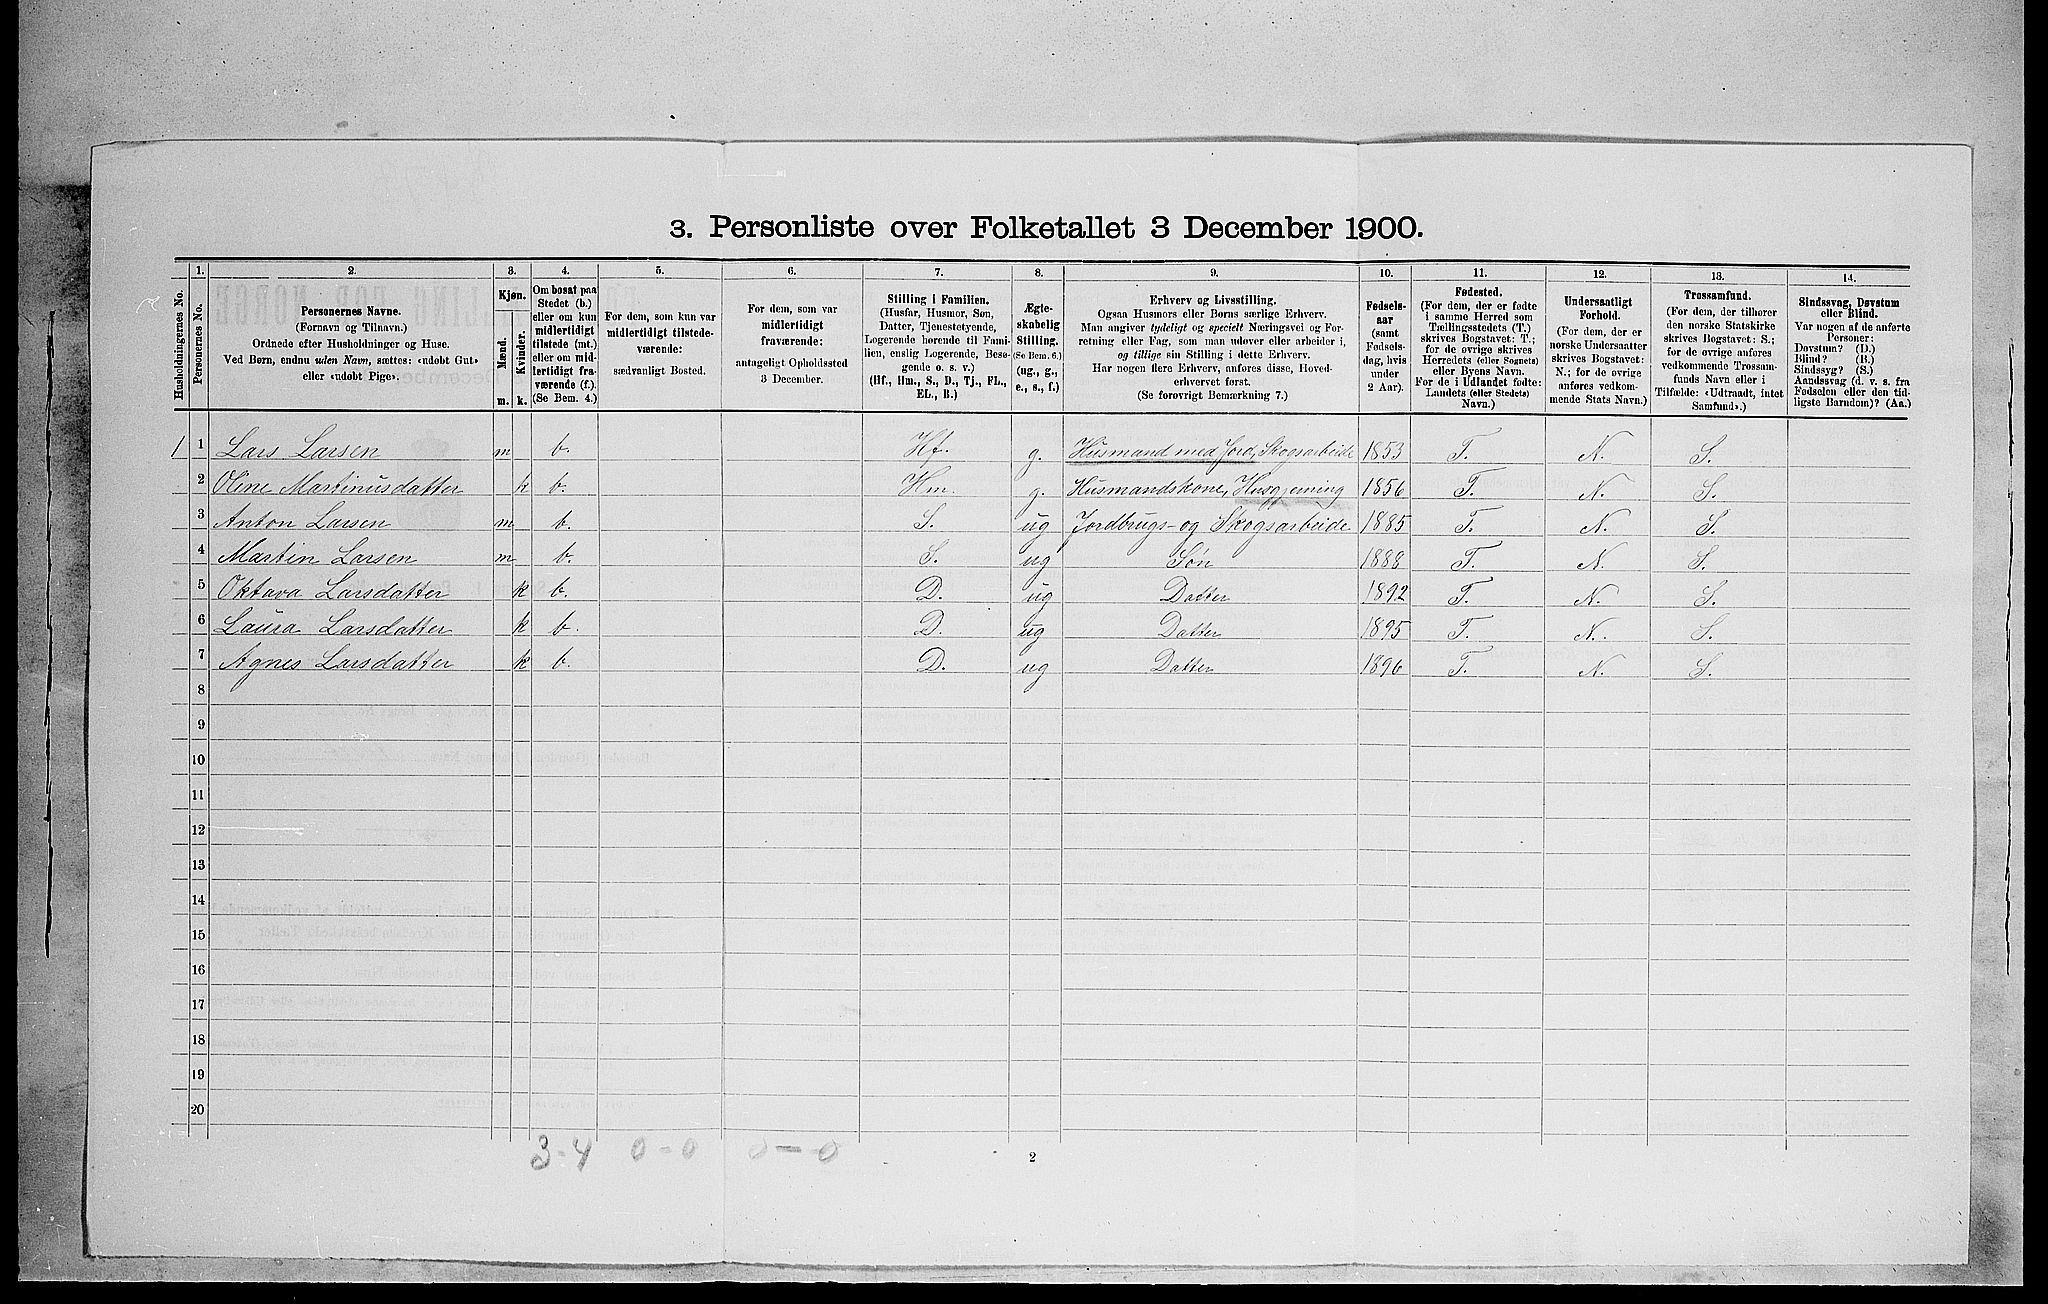 3. Personliste over Folketallet 3 December 1900.
1. 2. 3. 4. 5. 6. 7. 8. 9. 10. 11. 12. 13. 14.
Husholdningernes No.
Personernes No.
Personernes Navne.
(Fornavn og Tilnavn.)
Ordnede efter Husholdninger og Huse.
Ved Børn, endnu uden Navn, sættes: «udøbt Gut»
eller «udøbt Pige».
Kjøn.
Mænd.
Kvinder.
m. k.
Om bosat paa
Stedet (b.)
eller om kun
midlertidigt
tilstede (mt.)
eller om mid-
lertidigt fra-
værende (f.).
(Se Bem. 4.)
For dem, som kun var
midlertidigt tilstede-
værende:
sædvanligt Bosted.
For dem, som var
midlertidigt
fraværende:
antageligt Opholdssted
3 December.
Stilling i Familien.
(Husfar, Husmor, Søn,
Datter, Tjenestetyende,
Logerende hørende til Fami-
lien, enslig Logerende, Besø-
gende o. s. v.)
(Hf., Hm., S., D., Tj., FL.,
EL., B.)
Ægte-
skabelig
Stilling.
(Se Bem. 6.)
(ug., g.,
e., s., f.)
Erhverv og Livsstilling.
Ogsaa Husmors eller Børns særlige Erhverv.
Man angiver tydeligt og specielt Næringsvei og For-
retning eller Fag, som man udøver eller arbeider i,
og tillige sin Stilling i dette Erhverv.
Har nogen flere Erhverv, anføres disse, Hoved-
erhvervet først.
(Se forøvrigt Bemærkning 7.)
Fødsels-
aar
(samt
Fødsels-
dag, hvis
under
2 Aar).
Fødested.
(For dem, der er fødte
i samme Herred som
Tællingsstedets (T.)
skrives Bogstavet: T.;
for de øvrige skrives
Herredets (eller Sognets)
eller Byens Navn.
For de i Udlandet fødte:
Landets (eller Stedets)
Navn.)
Undersaatligt
Forhold.
(For dem, der er
norske Undersaatter
skrives Bogstavet:
N.; for de øvrige
anføres vedkom-
mende Stats Navn.)
Trossamfund.
(For dem, der tilhører
den norske Statskirke
skrives Bogstavet: S.;
for de øvrige anføres
vedkommende Trossam-
funds Navn eller i
Tilfælde: «Udtraadt, intet
Samfund».)
Sindssvag, Døvstum
eller Blind.
Var nogen af de anførte
Personer:
Døvstum? (D.)
Blind? (B.)
Sindssyg? (S.)
Aandssvag (d. v. s. fra
Fødselen eller den tid-
ligste Barndom)? (Aa.)
1 1 Lars Larsen m b. Hf. g. Husmand med Jord, Skogsarbeide 1853 T. N. S.
2 Oline Martinusdatter k b. Hm. g. Husmandskone, Husgjerning 1856 T. N. S.
3 Anton Larsen m b. S. ug Jordbrugs- og Skogsarbeide 1885 T. N. S.
4 Martin Larsen m b. S. ug Søn 1888 T. N. S.
5 Oktava Larsdatter k b. D. ug Datter 1892 T. N. S.
6 Laura Larsdatter k b. D. ug Datter 1895 T. N. S.
7 Agnes Larsdatter k b. D. ug Datter 1896 T. N. S.
8
9
10
11
12
13
14
15
16
17
18
19
20
3-4 0-0 0-0
2